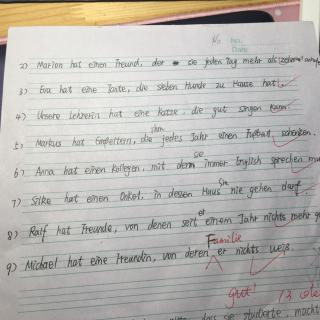 2) Marion hat einen Freund, der sie jeden Tag mehr als zehnmal
3) Eva hat eine Tante, die sieben Hunde zu Hause hat.
4) Unsere Lehrerin hat eine Katze, die gut singen kann.
5) Markus hat Großeltern, die ihm jedes Jahr einen Fußball schenken.
6) Anna hat einen Kollegen, mit dem sie immer Englisch sprechen
7) Silke hat einen Onkel, in dessen Haus sie nie gehen darf
8) Ralf hat Freunde, von denen er seit einem Jahr nichts mehr
9) Michael hat eine Freundin, von deren Familie er nichts weiß.
gut!